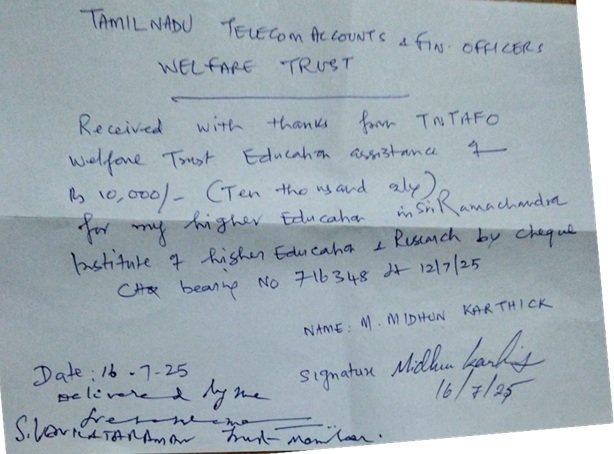 TAMILNADU TELECOM ACCOUNTS & FIN. OFFICERS
WELFARE TRUST
Received with thanks from TNTAFO
Welfare Trust Education assistance of
Rs 10,000/- (Ten thousand only)
for my higher Education in Sri Ramachandra
Institute of higher Education & Research by cheque
bearing No 716348 dt 12/7/25
NAME: M. MIDHUN KARTHICK
Signature Midhun Karthick
16/7/25
Date: 16-7-25
Delivered by me
S. VENKATARAMAN Trust Member.